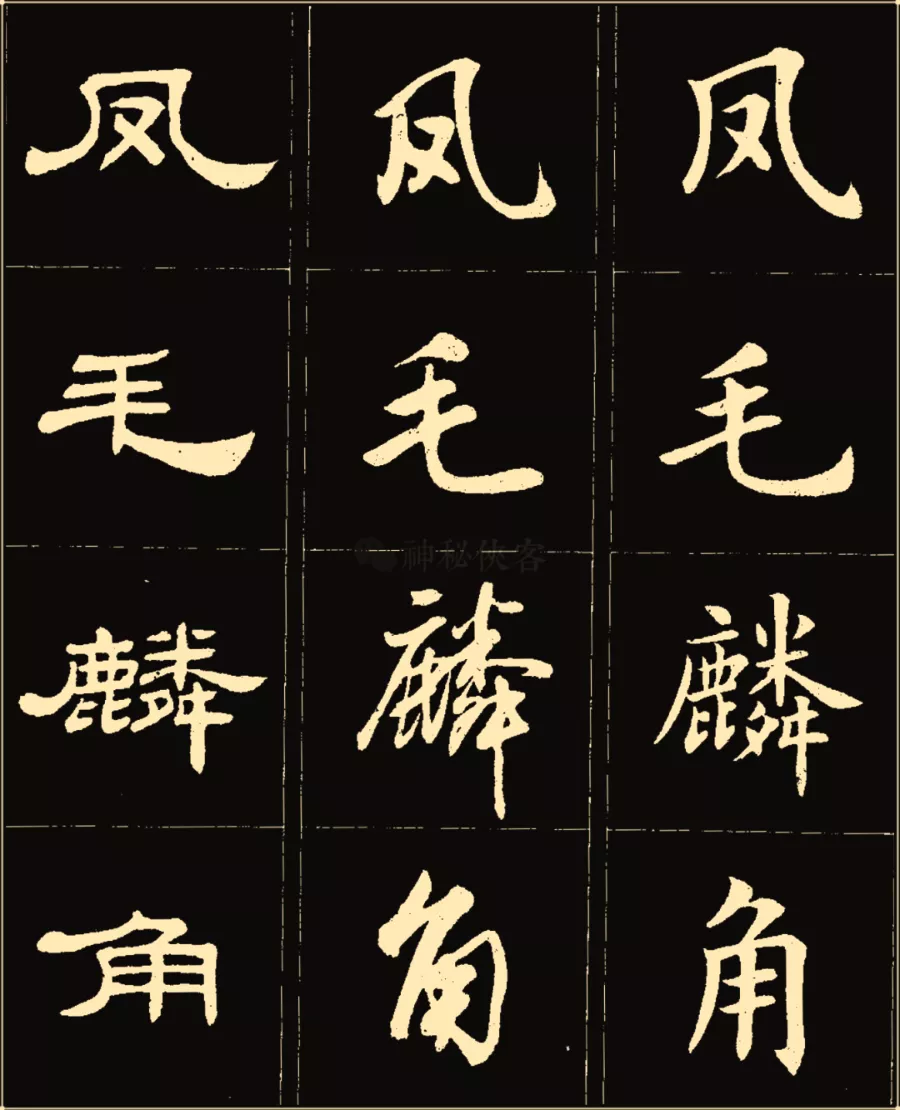 凤 凤 凤
毛 毛 毛
神秘侠客
麟 麟 麟
角 角 角